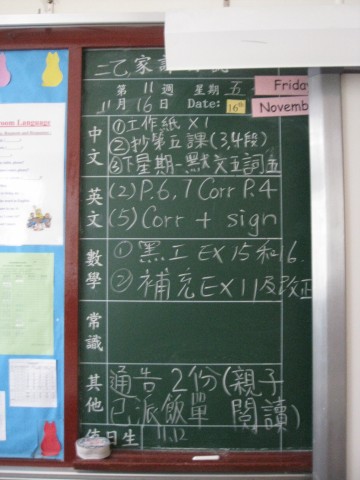 二乙家課
第 11 週 星期 五 Friday
11月16日 Date: 16th Novemb
中文 ①工作紙 X1
②抄第五課(3,4段)
③下星期一默文五詞五
英文 (2) P.6,7 Corr P.4
(5) Corr + sign
數學 ① 黑工 EX 15 和 16.
② 補充 EX 11 及改正
常識
其他 通告 2份(親子閱讀)
已派飯單
值日生 11,12
oom Language